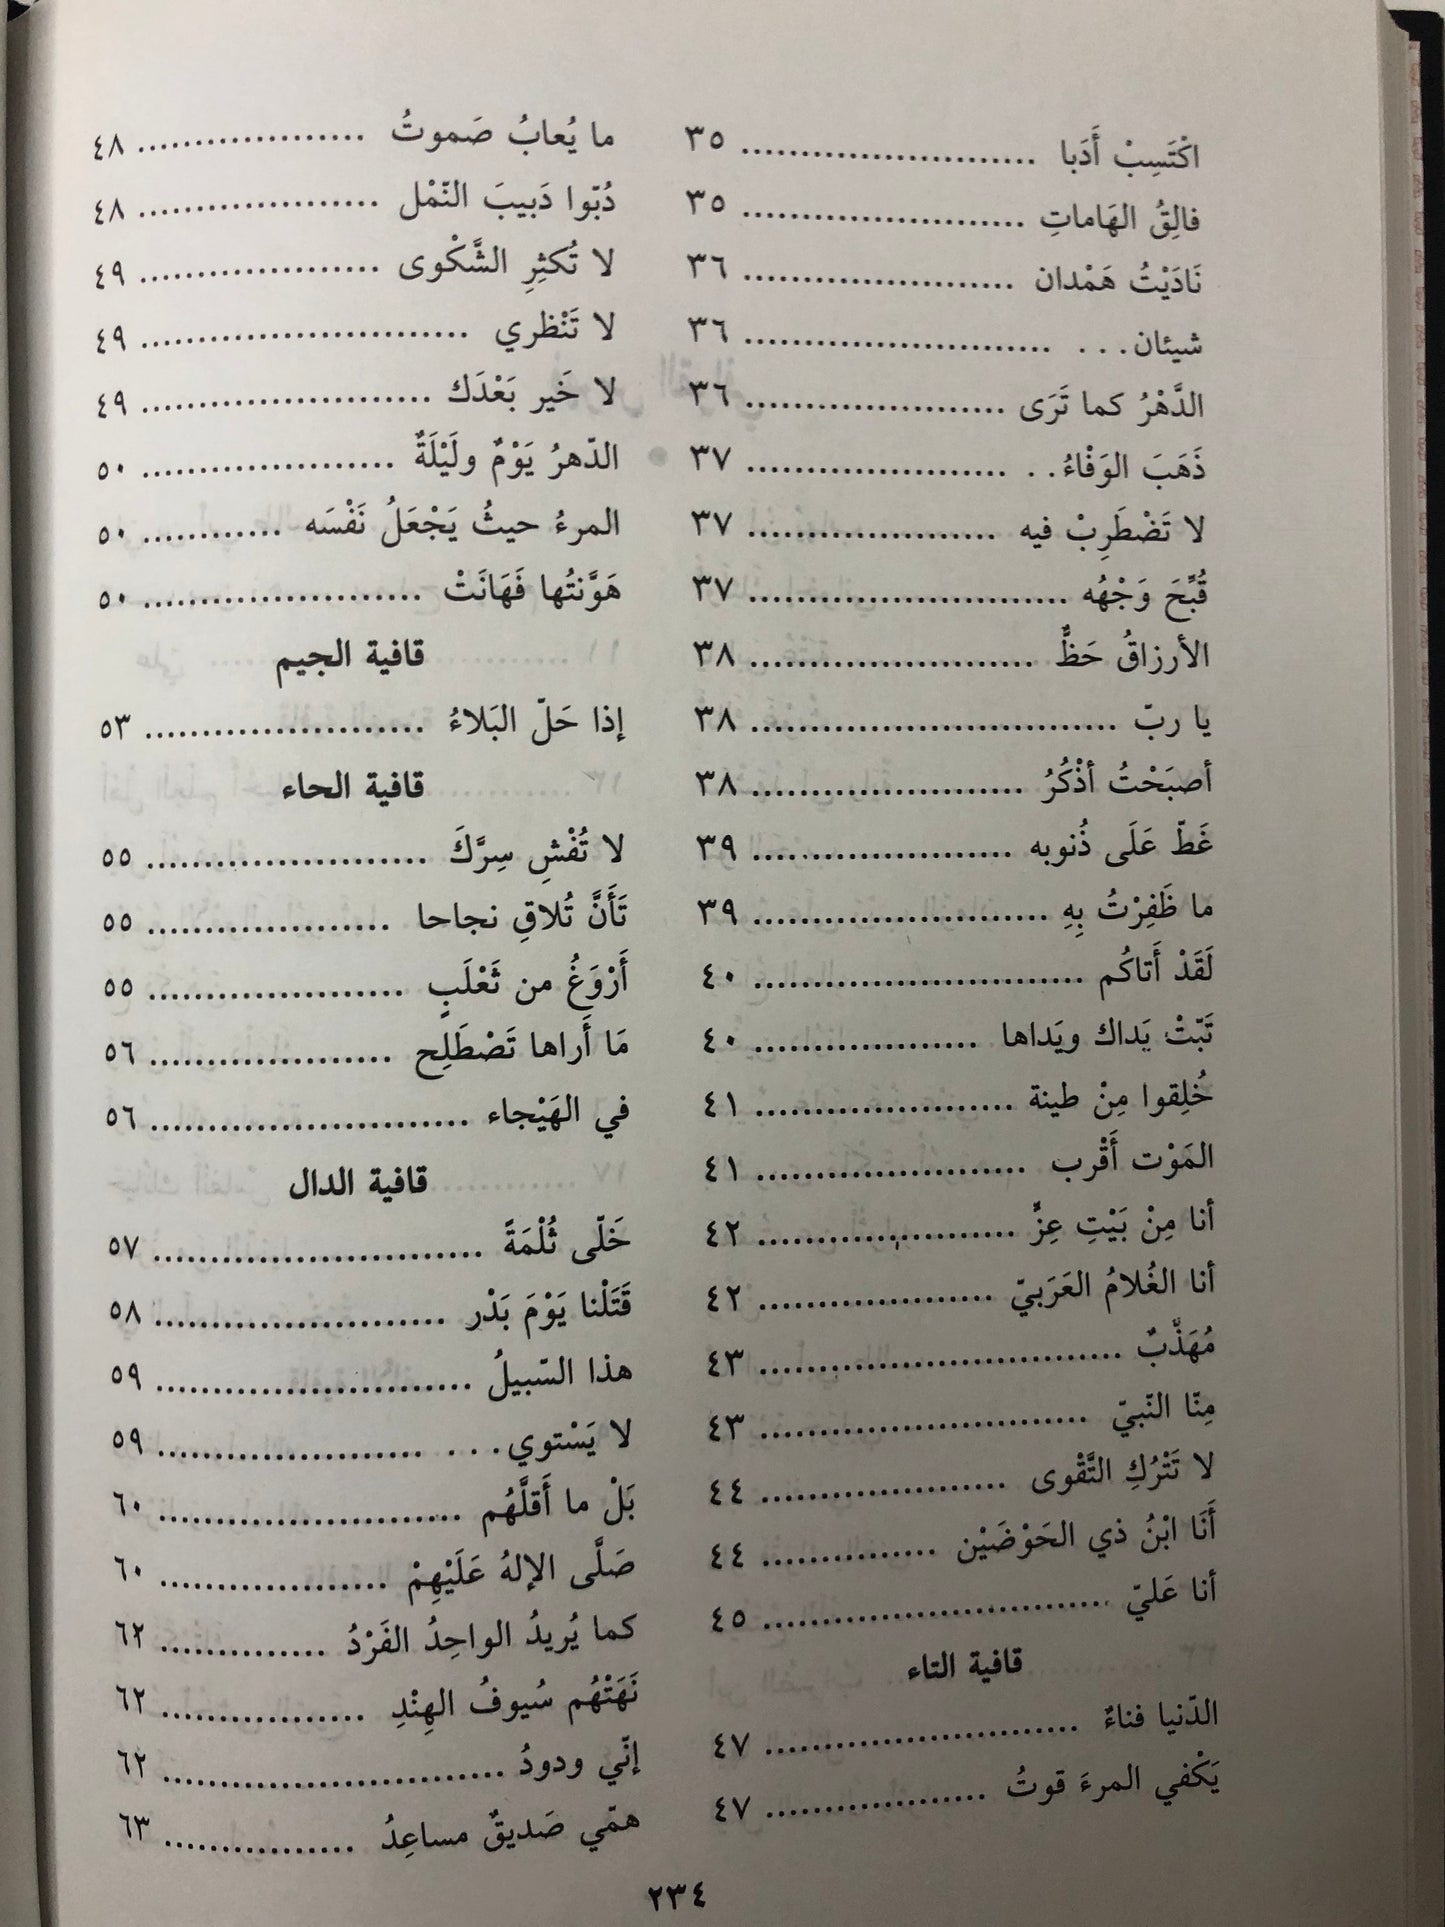 اكْتَسِبْ أَدَبا ......................... ٣٥
فالِقُ الهَاماتِ ........................ ٣٥
نَادَيْتُ هَمْدان ....................... ٣٦
شيئان. . . .......................... ٣٦
الدَّهْرُ كما تَرَى ...................... ٣٦
ذَهَبَ الوَفْاءُ. . ...................... ٣٧
لا تَضْطَرِبْ فيه ..................... ٣٧
قُبِّحَ وَجْهُه ........................... ٣٧
الأرزاقُ حَظٌّ ........................ ٣٨
يا ربّ ............................... ٣٨
أصبَحْتُ أذْكُرُ ....................... ٣٨
غَطّ عَلَى ذُنوبه ...................... ٣٩
ما ظَفِرْتُ بِهِ ......................... ٣٩
لَقَدْ أَتاكُم ............................ ٤٠
تَبّتْ يَداك ويَداها ................... ٤٠
خُلِقوا مِنْ طينة ...................... ٤١
المَوْت أَقْرب ....................... ٤١
أنا مِنْ بَيْتِ عِزٍّ ...................... ٤٢
أنا الغُلامُ العَرَبيّ .................... ٤٢
مُهَذَّبٌ ............................... ٤٣
مِنّا النّبيّ ............................ ٤٣
لا تَتْرُكِ التَّقْوى ..................... ٤٤
أَنَا ابْنُ ذي الحَوْضَيْن ............... ٤٤
أنا عَليّ .............................. ٤٥
قافية التاء
الدّنيا فناءٌ ........................... ٤٧
يَكْفي المرءَ قوتُ ................... ٤٧
ما يُعابُ صَموتُ .................... ٤٨
دُبّوا دَبيبَ النّمْل ..................... ٤٨
لا تُكثِرِ الشَّكْوى ..................... ٤٩
لا تَنْظري ............................ ٤٩
لا خَير بَعْدَك ......................... ٤٩
الدّهرُ يَوْمٌ ولَيْلَةٌ ...................... ٥٠
المرءُ حيثُ يَجْعَلُ نَفْسَه ............ ٥٠
هَوَّنتُها فَهَانَتْ ........................ ٥٠
قافية الجيم
إذا حَلّ البَلاءُ ........................ ٥٣
قافية الحاء
لا تُفْشِ سِرَّكَ ........................ ٥٥
تَأَنَّ تُلاقِ نجاحا ..................... ٥٥
أَرْوَغُ من ثَعْلَبٍ ...................... ٥٥
مَا أَراها تَصْطَلِح ..................... ٥٦
في الهَيْجاء ........................... ٥٦
قافية الدال
خَلّى ثُلْمَةً ............................ ٥٧
قَتَلْنا يَوْمَ بَدْر ......................... ٥٨
هذا السّبيلُ ........................... ٥٩
لا يَسْتوي. . . ....................... ٥٩
بَلْ ما أَقلَّهُم .......................... ٦٠
صَلَّى الإلهُ عَلَيْهِمْ .................... ٦٠
كما يُريدُ الواحِدُ الفَرْدُ ............... ٦٢
نَهَتْهُم سُيوفُ الهِنْدِ .................. ٦٢
إنّي ودودُ ............................. ٦٢
همّي صَديقٌ مساعِدُ ................. ٦٣
٢٣٤